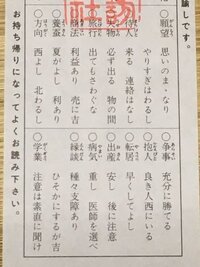 諭しです。
○願望 思いのま・なり
やりすぎはわるし
○待人 来る 連絡はなし
○失物 必ず出る 物の間
○旅行 出てもさわぐな
○商法 利益あり 売に吉
○養蚕 夏がよし 利あり
○方向 西よし 北わるし
○争事 充分に勝てる
○抱人 良き人西にいる
○転居 早くしてよし
○出産 安し 後に注意
○病気 重し 医師を選べ
○縁談 種々支障あり
ひそかにするが吉
○学業 注意は素直に聞け
お持ち帰りになってよくお読み下さい。